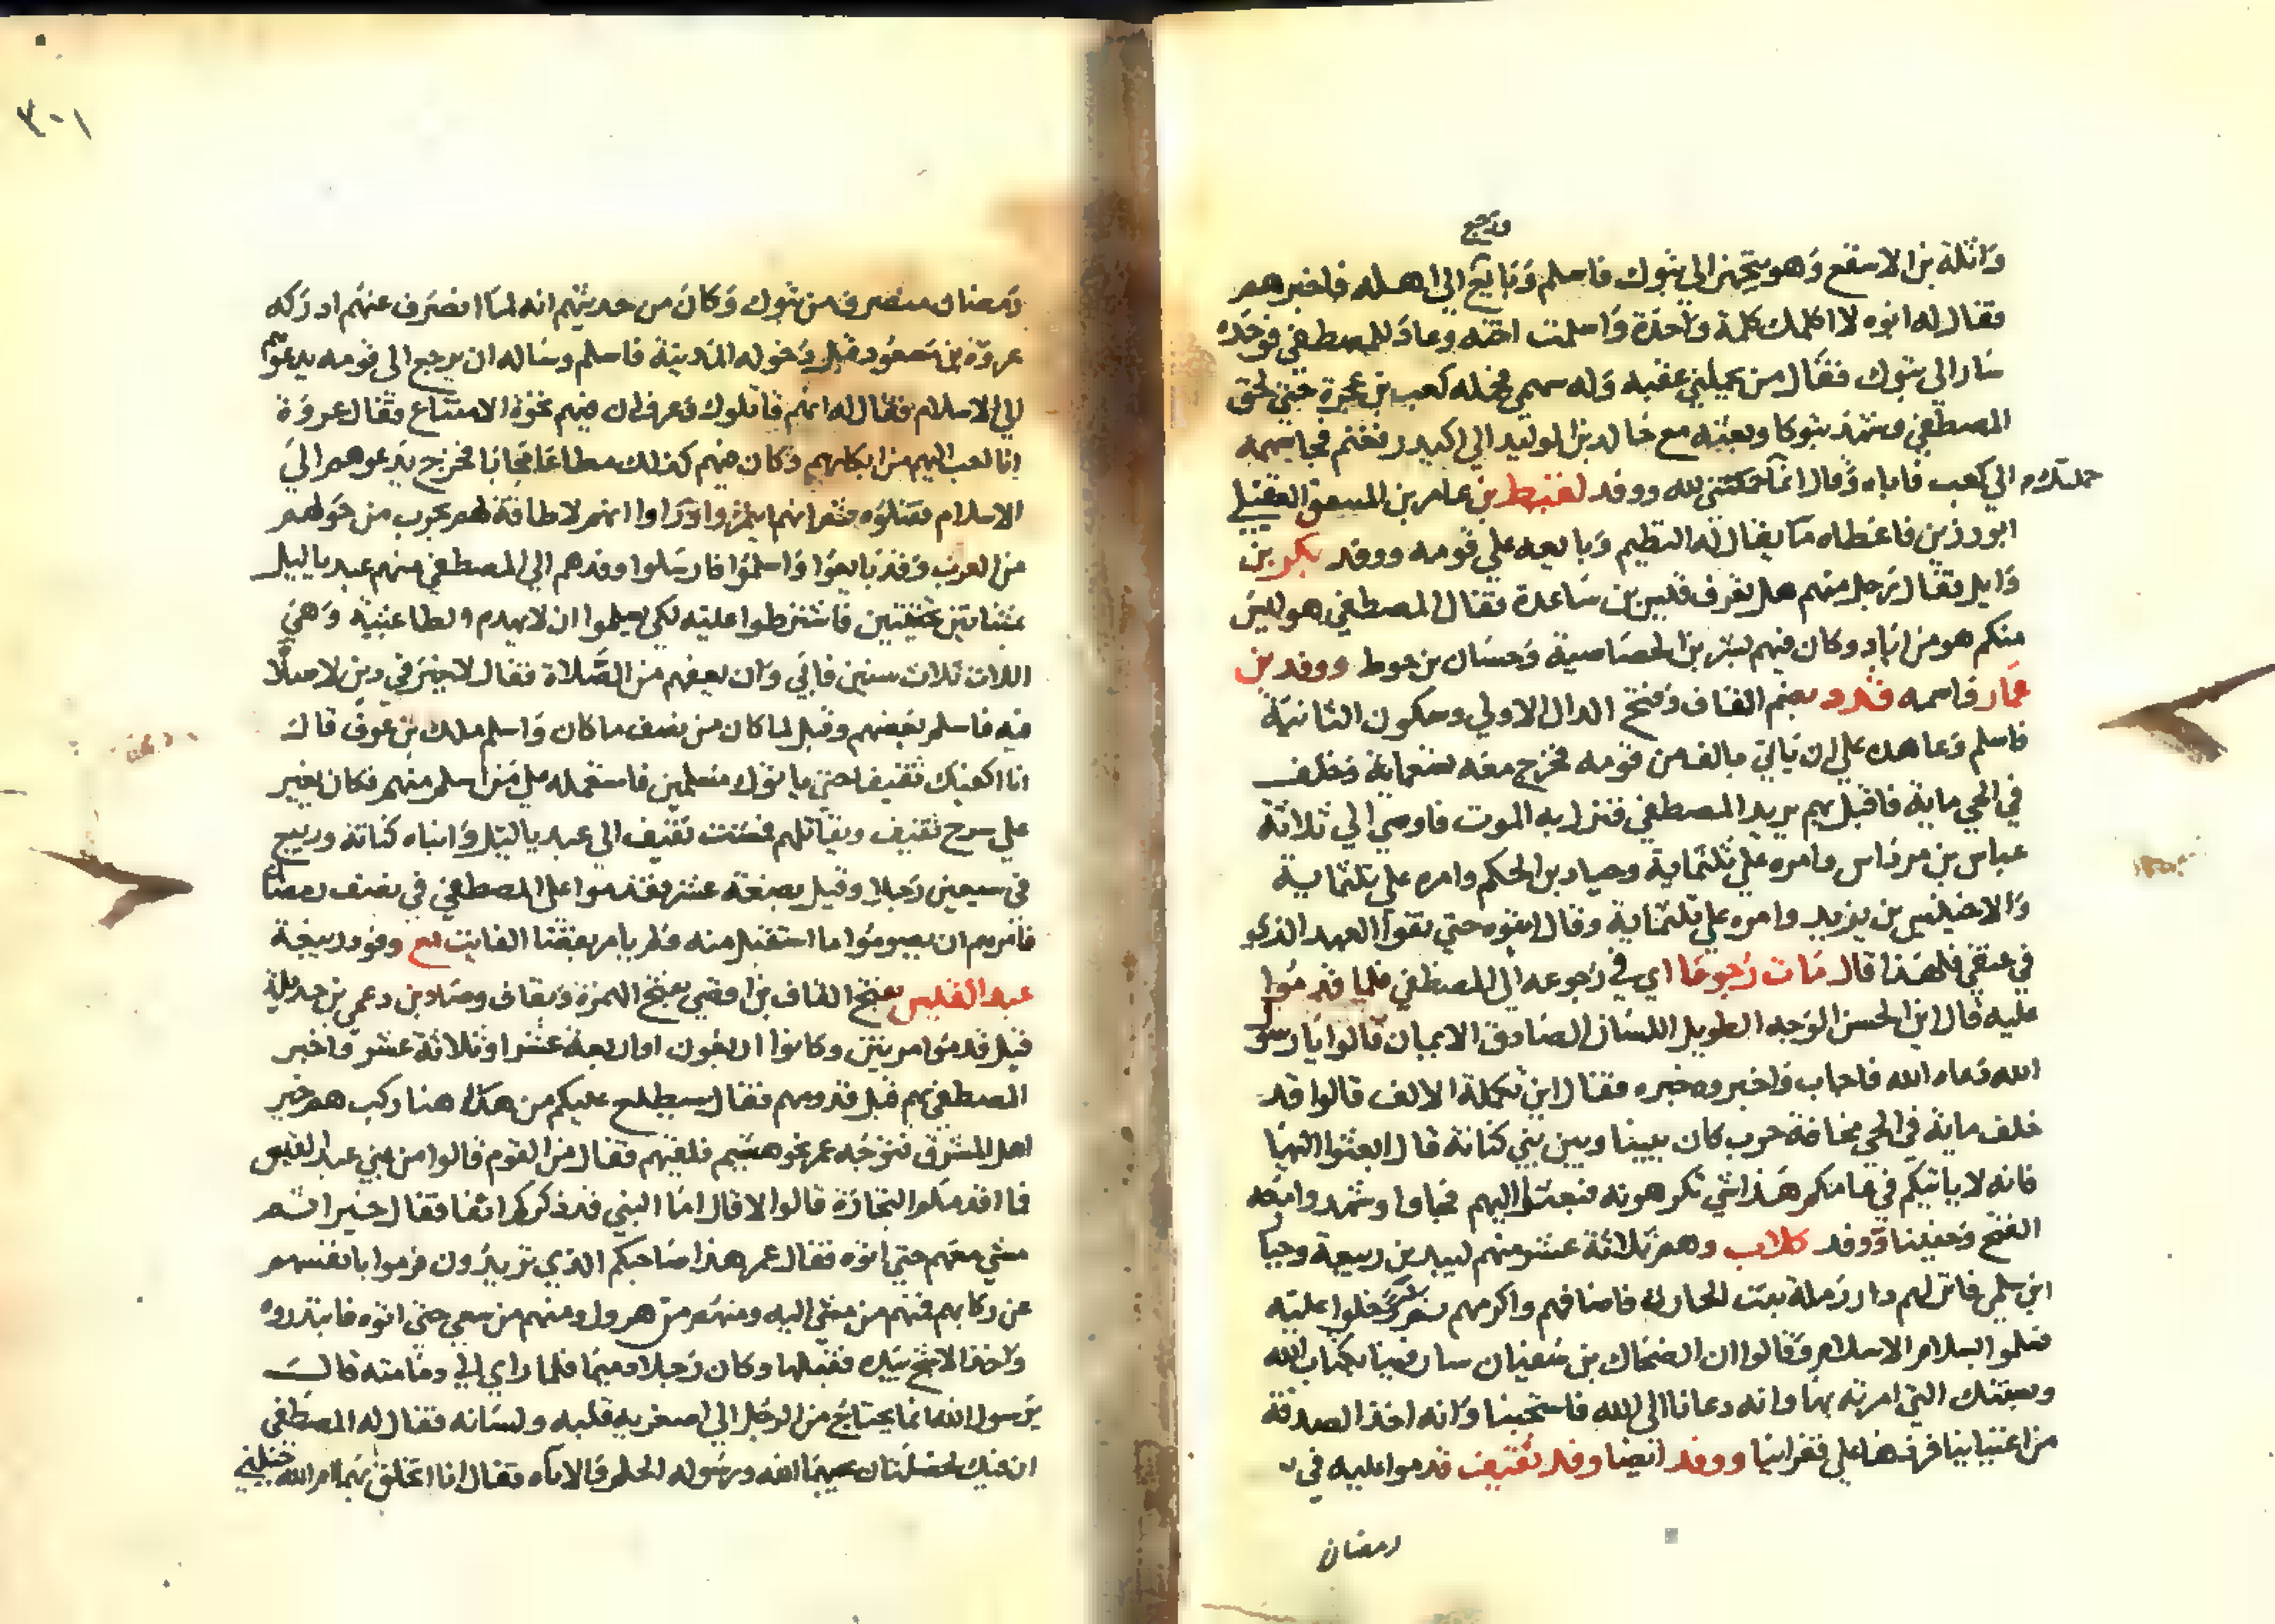 ورجع
واثلة بن الاسقع وهو يتجهز الى تبوك فاسلم وبايع الى اهله فاخبرهم
فقال له ابوه لا اكلمك كلمة واحدة واسلمت اخته وعاد للمصطفي فوجده
سار الي تبوك فقال من يحملني عقبه وله سهمي فحمله كعب بن عجرة حتي لحق
المصطفي وشهد تبوكا وبعثه مع خالد بن الوليد الي اكيدر فغنم فجا بسهمه
الي كعب فاباه وقال انما حملتك لله ووفد لقيط بن عامر بن المنتفق العقيلي
حملتك م
ابو رزين فاعطاه ما يقال له النظيم وبايعه علي قومه ووفد بكر بن
وايل فقال رجل منهم هل تعرف قس بن ساعدة فقال المصطفي هو ليس
منكم هو من اياد وكان فيهم بشر بن الخصاصية وحسان بن حوط ووفد بن
عمار واسمه قدد بضم القاف وفتح الدال الاولي وسكون الثانية
فاسلم وعاهده علي ان ياتي بالف من قومه فخرج معه تسعماية وخلف
في الحي ماية فاقبل بهم يريد المصطفي فنزل به الموت فاوصي الي ثلاثة
عباس بن مرداس وامره علي ثلثماية وحيار بن الحكم وامره علي ثلثماية
والاخنس بن يزيد وامره علي ثلثماية وقال ايتوه حتي تقوا العهد الذي
في عنقي فلهذا قال مات رجوعا اي في رجوعه الي المصطفي فلما قدموا
عليه قال اين الحسن الوجه الطويل اللسان الصادق الايمان قالوا يا رسول
الله دعاه الله فاجاب واخبروه خبره فقال اين تكملة الالف قالوا قد
خلف ماية في الحي مخافة حرب كان بيننا وبين بني كنانة قال ابعثوا اليها
فانه لا ياتيكم في عامكم هذا شي تكرهونه فبعثوا اليهم فجاوا وشهدوا معه
الفتح وحنينا ووفد كلاب وهم ثلاثة عشر منهم لبيد بن ربيعة وجبار
ابن سلمي فانزلهم دار رملة بنت الحارث فاضافهم واكرمهم ثم دخلوا عليه
فسلموا بسلام الاسلام وقالوا ان الضحاك بن سفيان سار فينا بكتاب الله
وبسنتك التي امرته بها وانه دعانا الى الله فاستجبنا وانه اخذ الصدقة
من اغنيانا فردها علي فقراينا ووفد ايضا وفد ثقيف قدموا عليه في
رمضان
١٠٣
رمضان منصرفه من تبوك وكان من حديثهم انه لما انصرف عنهم ادركه
عروة بن مسعود قبل دخوله المدينة فاسلم وساله ان يرجع الى قومه يدعوهم
الي الاسلام فقال له انهم قاتلوك وعرف ان فيهم نخوة الامتناع فقال عروة
انا احب اليهم من ابكارهم وكان فيهم كذلك مطاعا مجابا فخرج يدعوهم الي
الاسلام فقتلوه ثم انهم ايتمروا وراوا انهم لا طاقة لهم بحرب من حولهم
من العرب وقد بايعوا واسلموا فارسلوا وفدهم الي المصطفي منهم عبد ياليل
فاشترطوا عليه لكي يسلموا ان لا يهدم الطاغية وهي
اللات ثلاث سنين فابي وان يعفهم من الصلاة فقال لا خير في دين لا صلاة
فيه فاسلم بعضهم وقيل لما كان من نصف ما كان واسلم ملك بن عوف قال
انا اكفيك ثقيفا حتي ياتوك مسلمين فاستعمله علي من اسلم منهم فكان يغير
علي سرح ثقيف ويقاتلهم فمشت ثقيف الي عبد ياليل وابناه كنانة وربيع
في سبعين رجلا وقيل بضعة عشر فقدموا علي المصطفي في نصف رمضان
فامرهم ان يصوموا ما استقبل منه ولم يامرهم بقضا الفايت مع وفود ربيعة
عبد القيس بفتح القاف بن افصي بفتح الهمزة وبقاف وصاد بن دعمي بن جديلة
قيل قدموا مرتين وكانوا اربعون او اربعة عشر او ثلاثة عشر واخبر
المصطفي بهم قبل قدومهم فقال سيطلع عليكم من هذا هنا ركب هم خير
اهل المشرق فتوجه عمر نحوهم فلقيهم فقال من القوم قالوا من بني عبد القيس
فما اقدمكم التجارة قالوا لا قال اما النبي قد ذكركم انفا فقال خيرا ثم
مشي معهم حتي اتوه فقال عمر هذا صاحبكم الذي تريدون فرموا بانفسهم
عن ركابهم فمنهم من مشي اليه ومنهم من هرول ومنهم من سعي حتي اتوه فابتدروه
واخذ الاشج بيده فقبلها وكان رجلا دميما فلما راي الي دمامته قال
يرسول الله انما يحتاج من الرجل الي اصغريه قلبه ولسانه فقال له المصطفي
ان فيك لخصلتان يحبهما الله ورسوله الحلم والاناه فقال انا اتخلق بهما ام الله جبلني